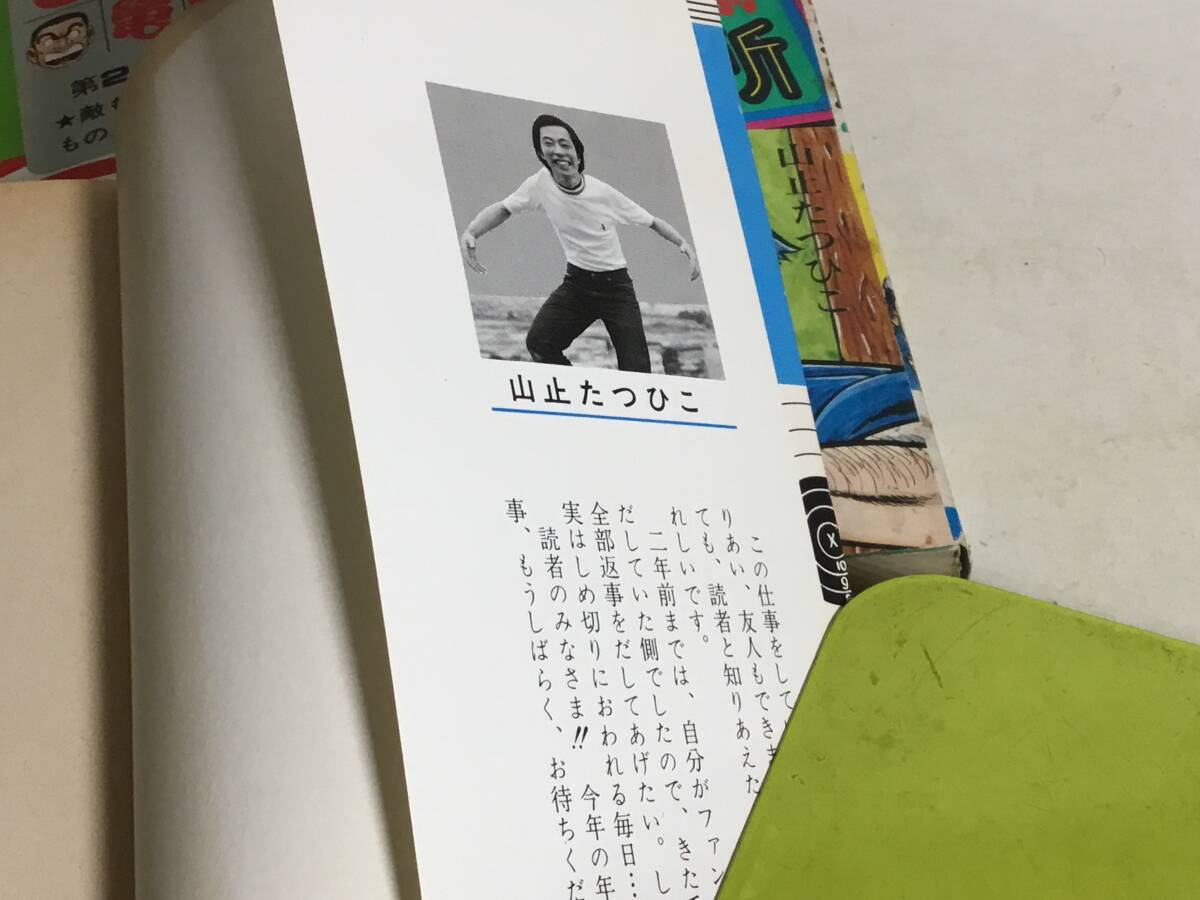 第2
★敵も
もの
所
山止たつひこ
山止たつひこ
この仕事をして
りあい、友人もできま
ても、読者と知りあえた
れしいです。
二年前までは、自分がファン
だしていた側でしたので、きた
全部返事をだしてあげたい。し
実はしめ切りにおわれる毎日…
読者のみなさま!! 今年の年
事、もうしばらく、お待ちくだ